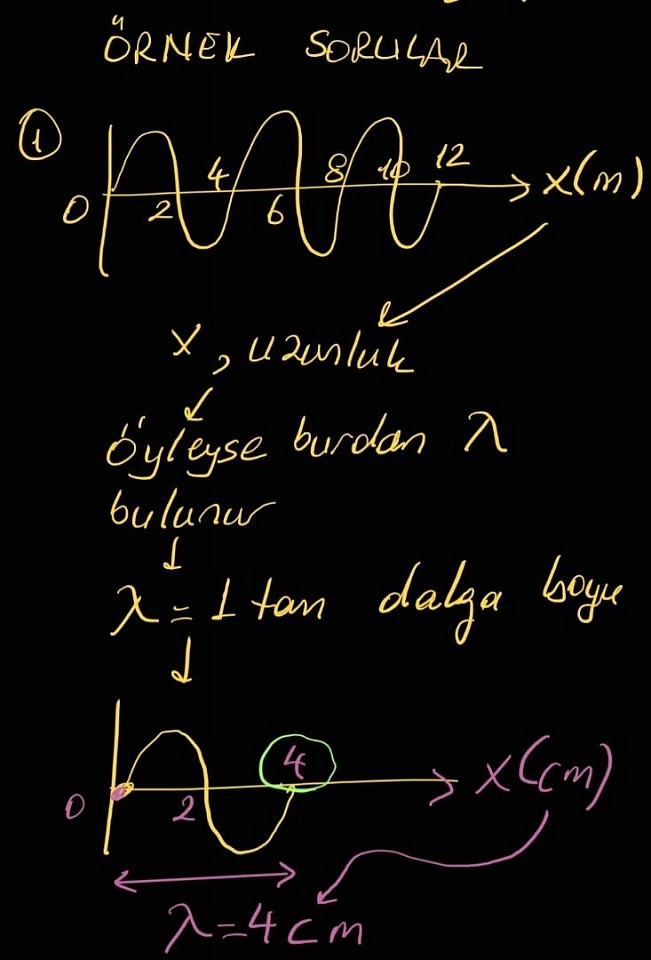 ÖRNEK SORULAR
1
4 8 10 12
0 2 6 x(m)
x, uzunluk
Öyleyse burdan λ
bulunur
λ = 1 tan dalga boyu
4
0 2 x(cm)
λ=4cm